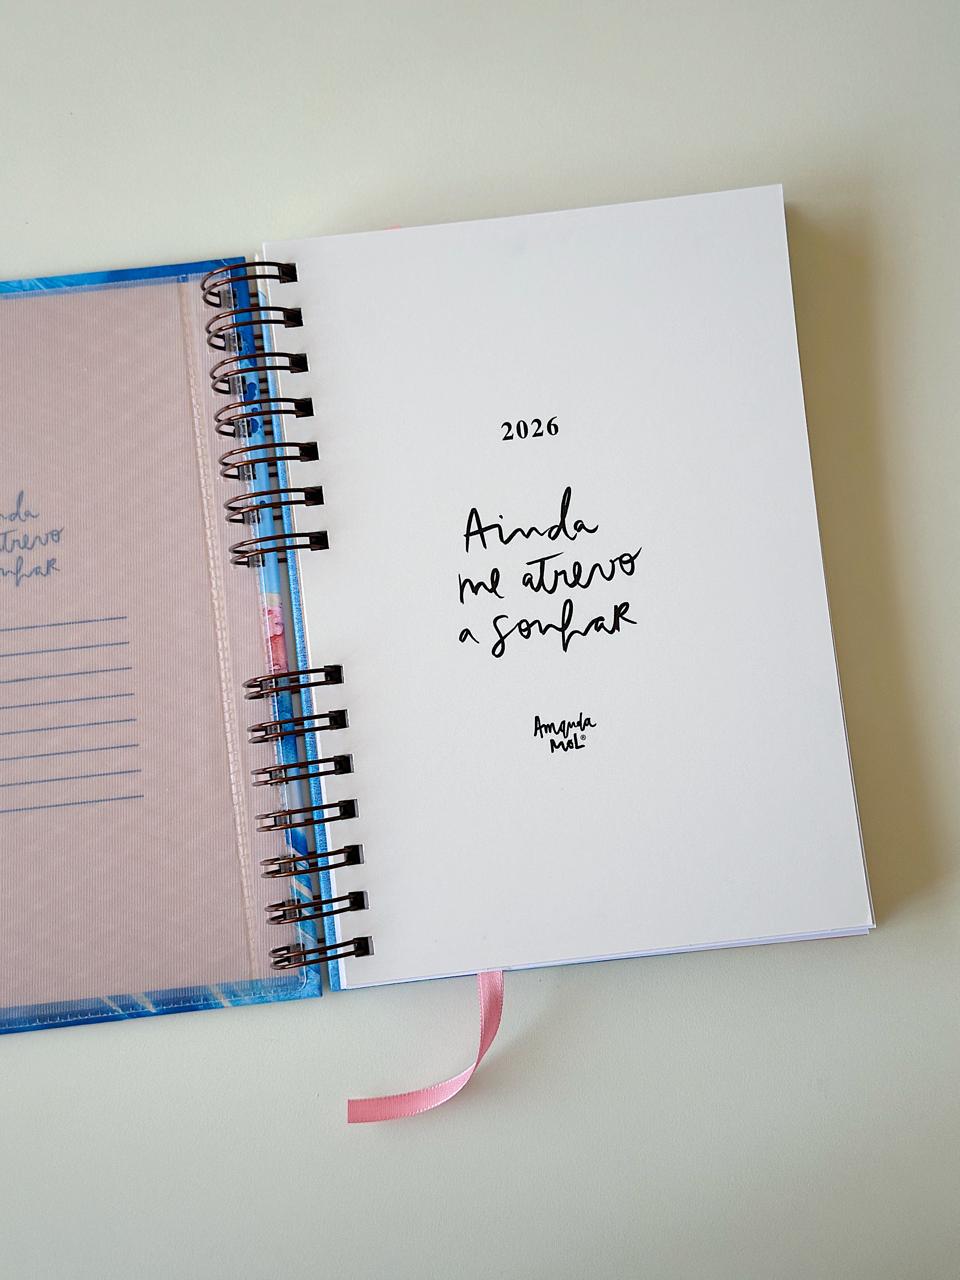 nda
atrevo
nhar
2026
Ainda
me atrevo
a sonhar
Amanda
MOL®